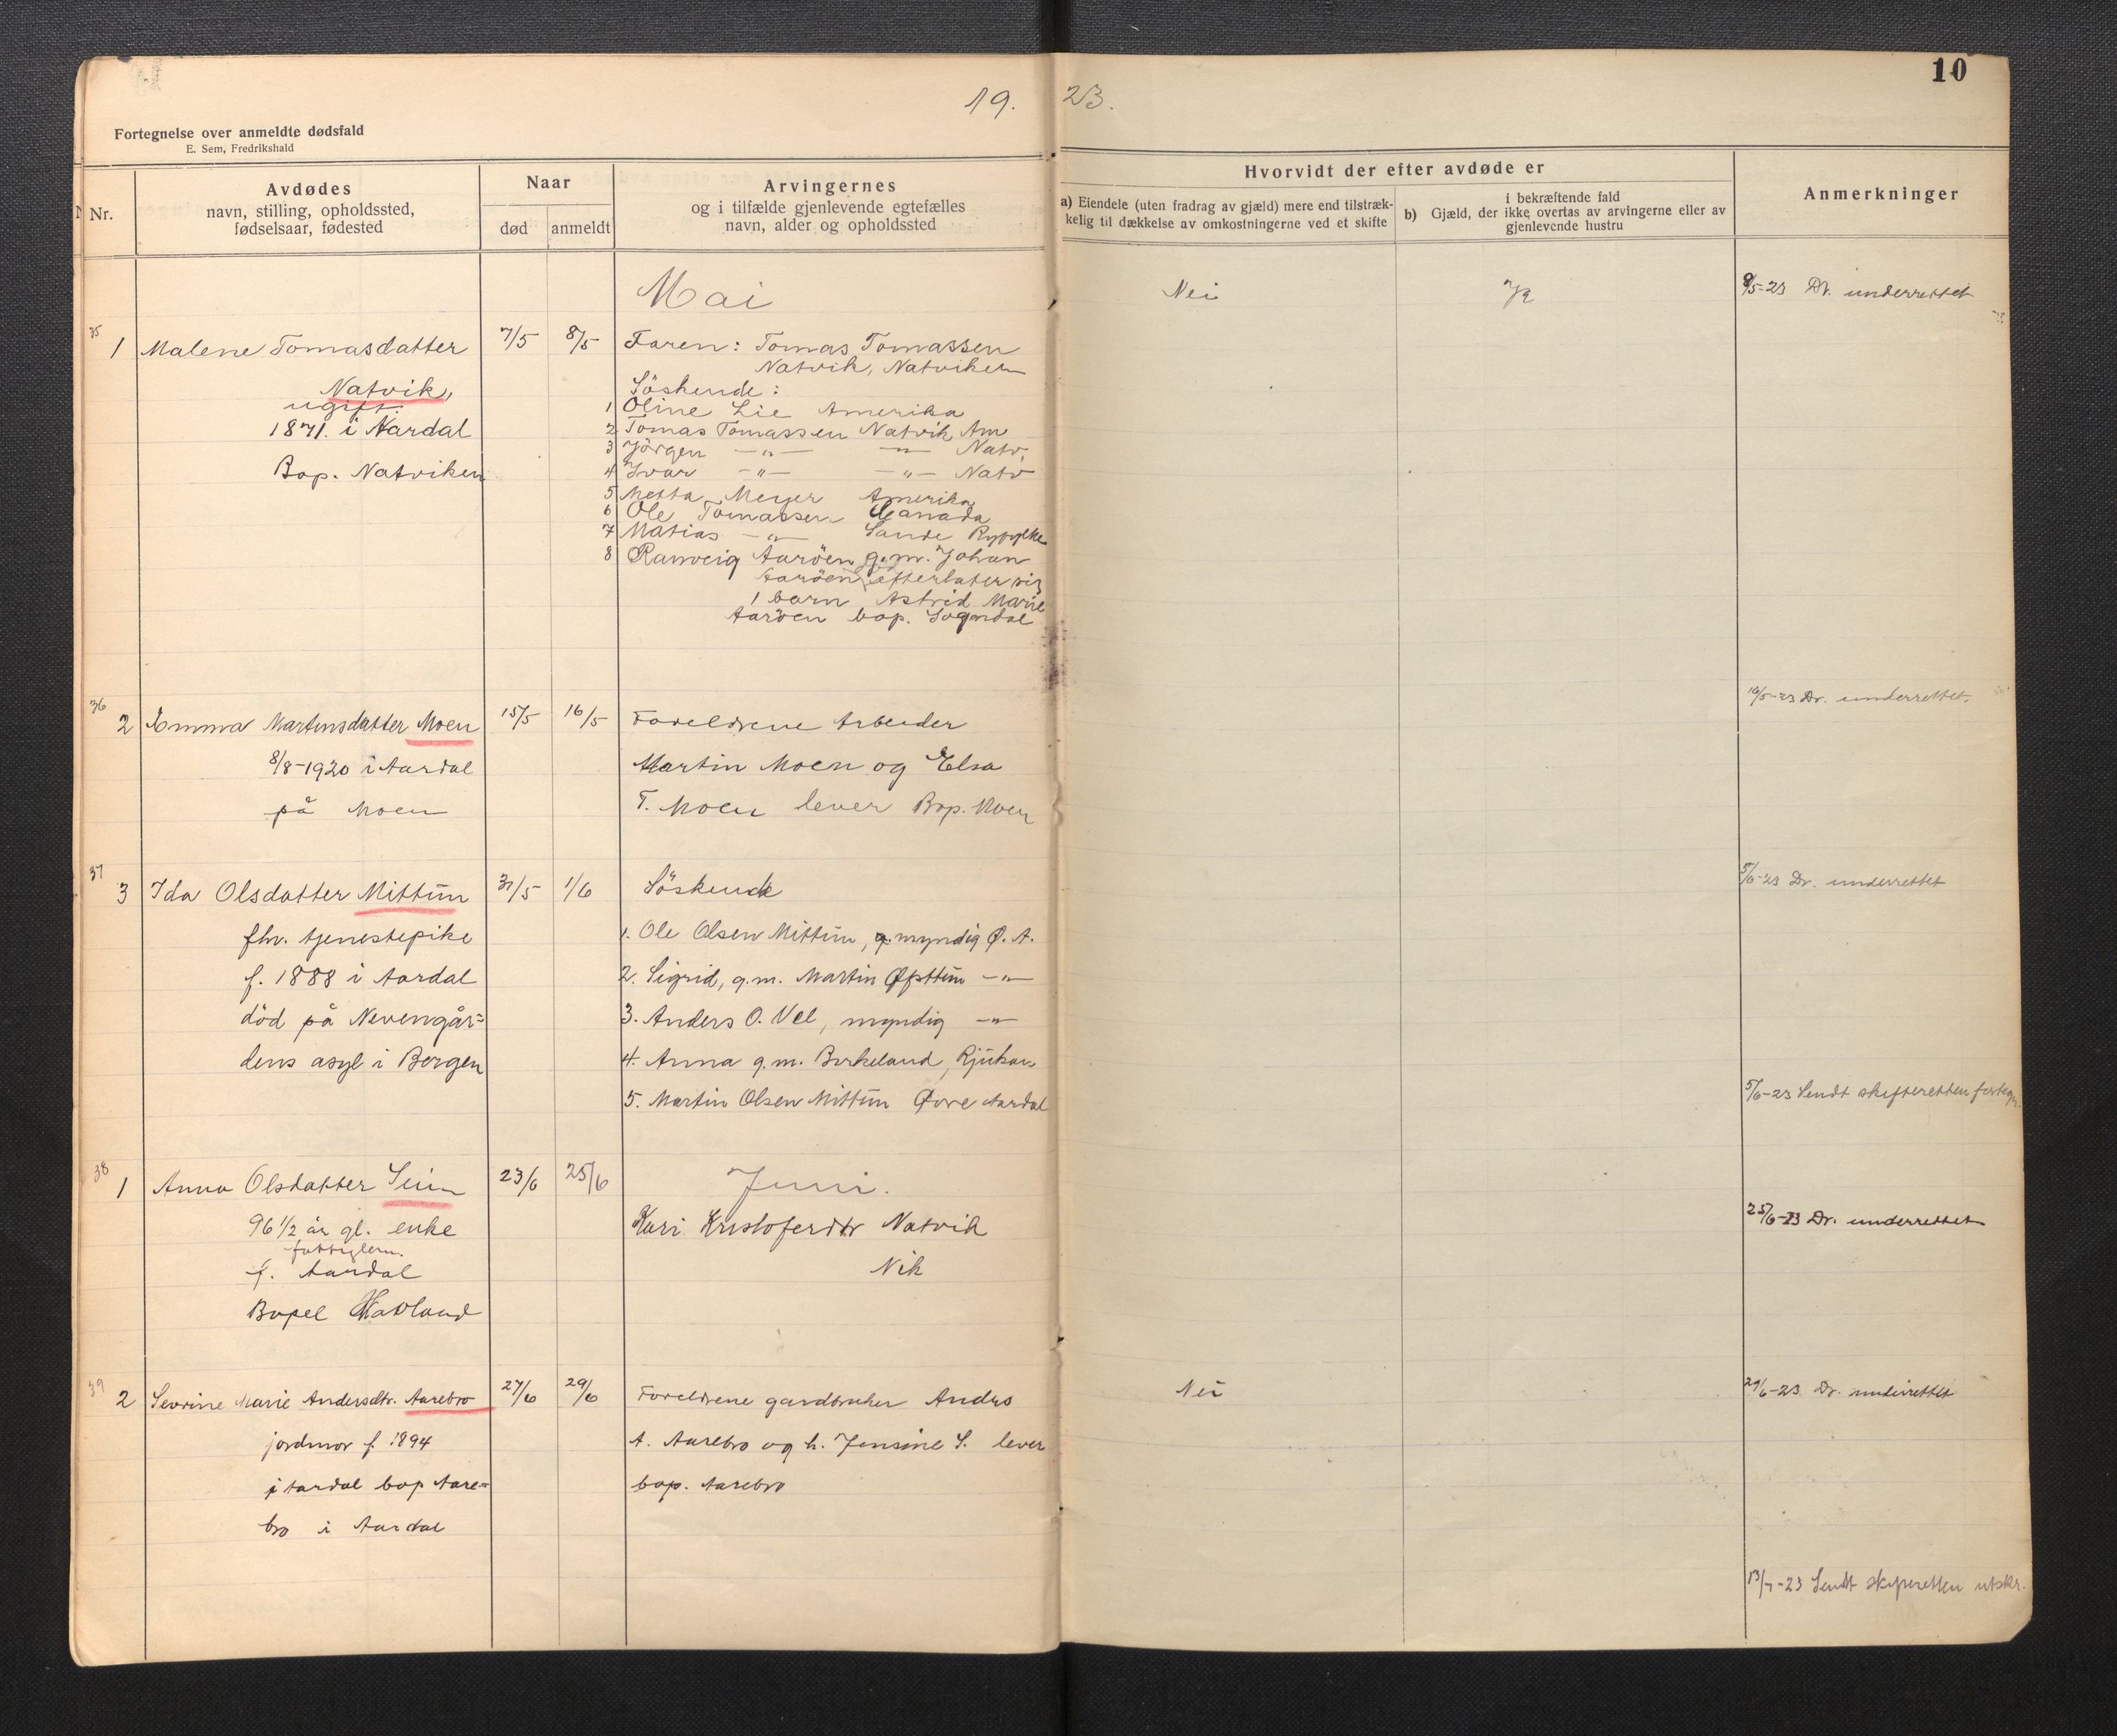 10
19. 23.
Fortegnelse over anmeldte dødsfald
E. Sem, Fredrikshald
Nr.
Avdødes
navn, stilling, opholdssted,
fødselsaar, fødested
Naar
død
anmeldt
Arvingernes
og i tilfælde gjenlevende egtefælles
navn, alder og opholdssted
Hvorvidt der efter avdøde er
a) Eiendele (uten fradrag av gjæld) mere end tilstræk-
kelig til dækkelse av omkostningerne ved et skifte
i bekræftende fald
b) Gjæld, der ikke overtas av arvingerne eller av
gjenlevende hustru
Anmerkninger
Mai
Nei
9/5-23 Dr. underrettet
35
1 Malene Tomasdatter 7/5 8/5
Natvik,
ugift.
1871. i Aardal
Bop. Natviken
Faren: Tomas Tomassen
Natvik, Natviken
Söskende:
1 Oline Lie Amerika
2 Tomas Tomassen Natvik Am
3 Jörgen —"— —"— Natv.
4 Ivar —"— —"— Natv
5 Metta Meyer Amerika
6 Ole Tomassen Canada
7 Matias —"— Sande Ryfylke
8 Ranveig Aaröen g.m. Johan
Aaröen efterlater sig
1 barn Astrid Marie
Aaröen bop. Sogndal
36
2 Emma Martinsdatter Moen 15/5 16/5
8/8-1920 i Aardal
på Moen
Foreldrene Arbeider
Martin Moen og Elsa
T. Moen lever Bop. Moen
16/5-23 Dr. underrettet.
37
3 Ida Olsdatter Mittun 31/5 1/6
fhv. tjenestepike
f. 1888 i Aardal
död på Nevengår=
dens asyl i Bergen
Söskende
1. Ole Olsen Mittun, g. myndig Ø. A.
2. Sigrid, g.m. Martin Øfsttun —"—
3. Anders O. Vel, myndig —"—
4. Anna g.m. Birkeland, Rjukan
5. Martin Olsen Mittun Øvre Aardal
5/6-23 Dr. underrettet
5/6-23 Sendt skifteretten fortegn.
38
1 Anna Olsdatter Seim 23/6 25/6
96 1/2 år gl. enke
fattiglem.
f. Aardal
Bopel Hatland
Juni.
Kari Kristoferdtr Natvik
25/6-23 Dr. underrettet
39
2 Sevrine Marie Andersdtr. Aarebro 27/6 29/6
jordmor f. 1894
i Aardal bop Aare=
bro i Aardal
Foreldrene gardbruker Anders
A. Aarebro og h. Jensine S. lever
bop. Aarebro
Nei
29/6-23 Dr. underrettet
13/7-23 Sendt skifteretten utskr.